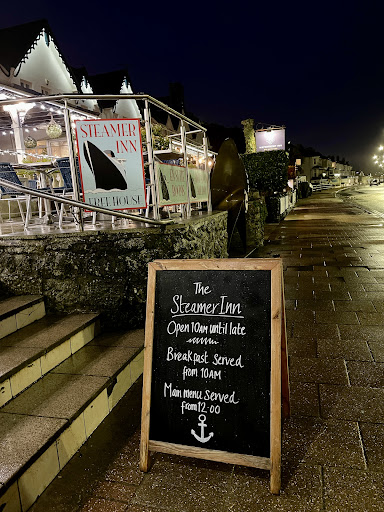 STEAMER
INN
FREE HOUSE
The
Steamer Inn
Open 10AM until late
Breakfast Served
from 10AM
Main menu served
from 12:00